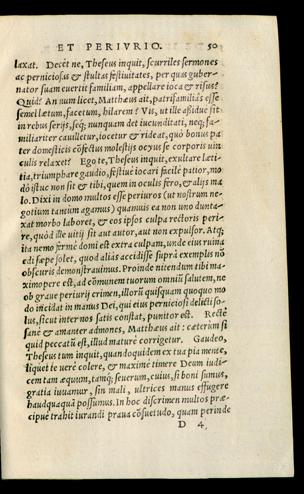 ET PERIVRIO. 50
laxat. Decét ne, Theseus inquit, scurriles sermones
ac perniciosas & stultas festiuitates, per quas guber-
nator suam euertit familiam, appellare ioca & risus?
Quid? An num licet, Matthæus ait, patrifamiliâs esse
semel lætum, facetum, hilarem? Vis, ut ille aßidue sit
in rebus serijs, seq; nunquam det iucunditati, neq; fa-
miliariter cauilletur, iocetur & rideat, quò bonus pa
ter domesticis cõfectus molestijs ocyus se corporis uin
culis relaxet? Ego te, Theseus inquit, exultare læti-
tia, triumphare gaudio, festiuè iocari facilè patior, mo
dò istuc non sit & tibi, quem in oculis fero, & alijs ma
lo. Dixi in domo multos esse periuros (ut nostrum ne-
gotium tantùm agamus) quamuis ea non uno dunta-
xat morbo laboret, & eos ipsos culpa rectoris peri-
re, quòd ille uitij sit aut autor, aut non expulsor. Atq;
ita nemo fermè domi est extra culpam, unde eius ruina
edi sæpe solet, quod aliàs accidisse suprà exemplis nõ
obscuris demonstrauimus. Proinde nitendum tibi ma-
ximopere est, ad cõmunem tuorum omniũ salutem, ne
ob graue periurij crimen, illorũ quisquam quoquo mo
do incidat in manus Dei, qui eius perniciosi delicti so-
lus, sicut inter nos satis constat, punitor est. Rectè
sanè & amanter admones, Matthæus ait: cæterùm si
quid peccatũ est, illud maturè corrigetur. Gaudeo,
Theseus tum inquit, quandoquidem ex tua pia mente,
liquet te uerè colere, & maximè timere Deum iudi-
cem tam æquum, tamq; seuerum, cuius, si boni sumus,
gratia iuuamur, sin mali, ultrices manus effugere
haudquaquã possumus. In hoc discrimen multos præ-
cipuè trahit iurandi praua cõsuetudo, quam perinde
D 4